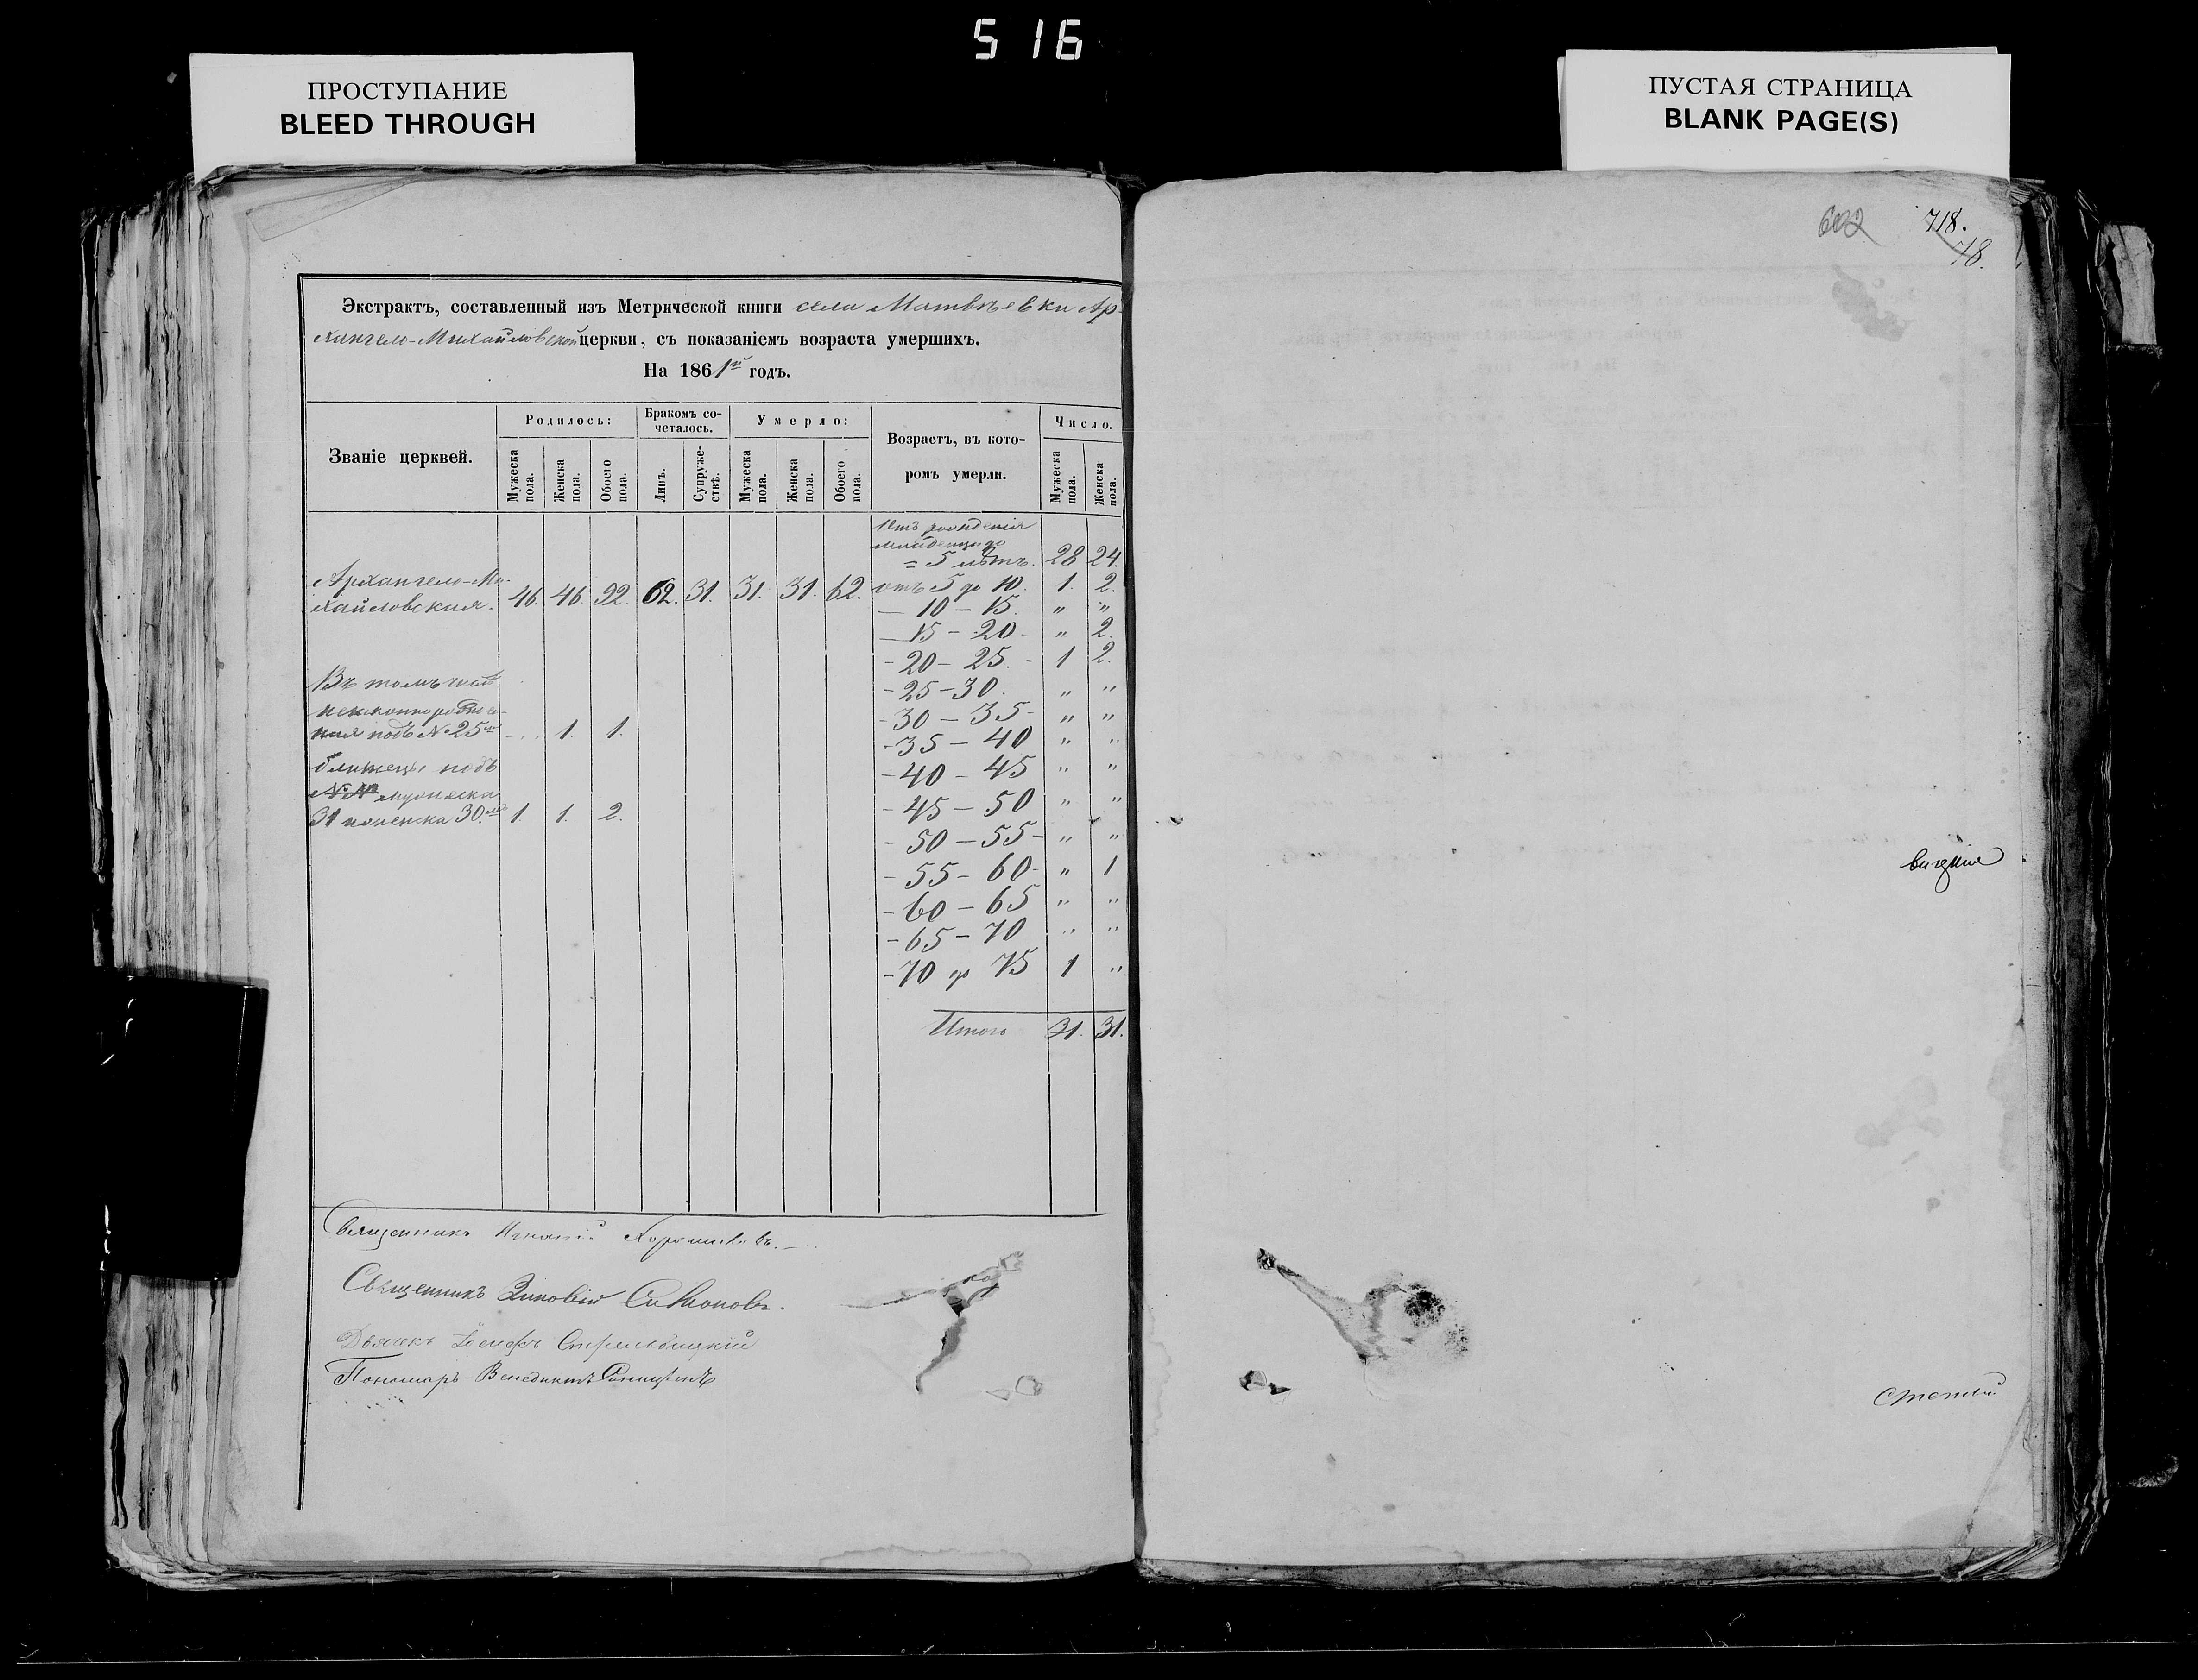 516
ПРОСТУПАНИЕ
BLEED THROUGH
ПУСТАЯ СТРАНИЦА
BLANK PAGE(S)
718.
78.
Экстрактъ, составленный изъ Метрической книги села Матвѣевки Ар-
хангело-Михайловской церкви, съ показаніемъ возраста умершихъ.
На 1861й годъ.
Званіе церквей.
Родилось:
Мужеска пола.
Женска пола.
Обоего пола.
Бракомъ со-
четалось.
Лицъ.
Супруже-
ствъ.
Умерло:
Мужеска пола.
Женска пола.
Обоего пола.
Возрастъ, въ кото-
ромъ умерли.
Число.
Мужеска пола.
Женска пола.
Отъ рожденія
младенца до
5 лѣтъ. 28 24.
Архангело-Ми-
хайловская. 46. 46. 92. 62. 31. 31. 31. 62.
отъ 5 до 10. 1. 2.
— 10 – 15. „ „
— 15 – 20 „ 2.
– 20 – 25. 1 2.
– 25 – 30. „ „
– 30 – 35 – „ „
– 35 – 40 „ „
– 40 – 45 „ „
– 45 – 50 „ „
– 50 – 55 – „ „
– 55 – 60 – „ 1
– 60 – 65 „ „
– 65 – 70 „ „
– 70 до 75 1 „
Итого 31. 31.
Въ томъ числѣ
подъ № 25 1. 1.
близнецы подъ
мужеска
31 женска 30. 1. 1. 2.
Священникъ
Священникъ Зиновій
Дьячекъ Іосифъ
Пономарь Венедиктъ